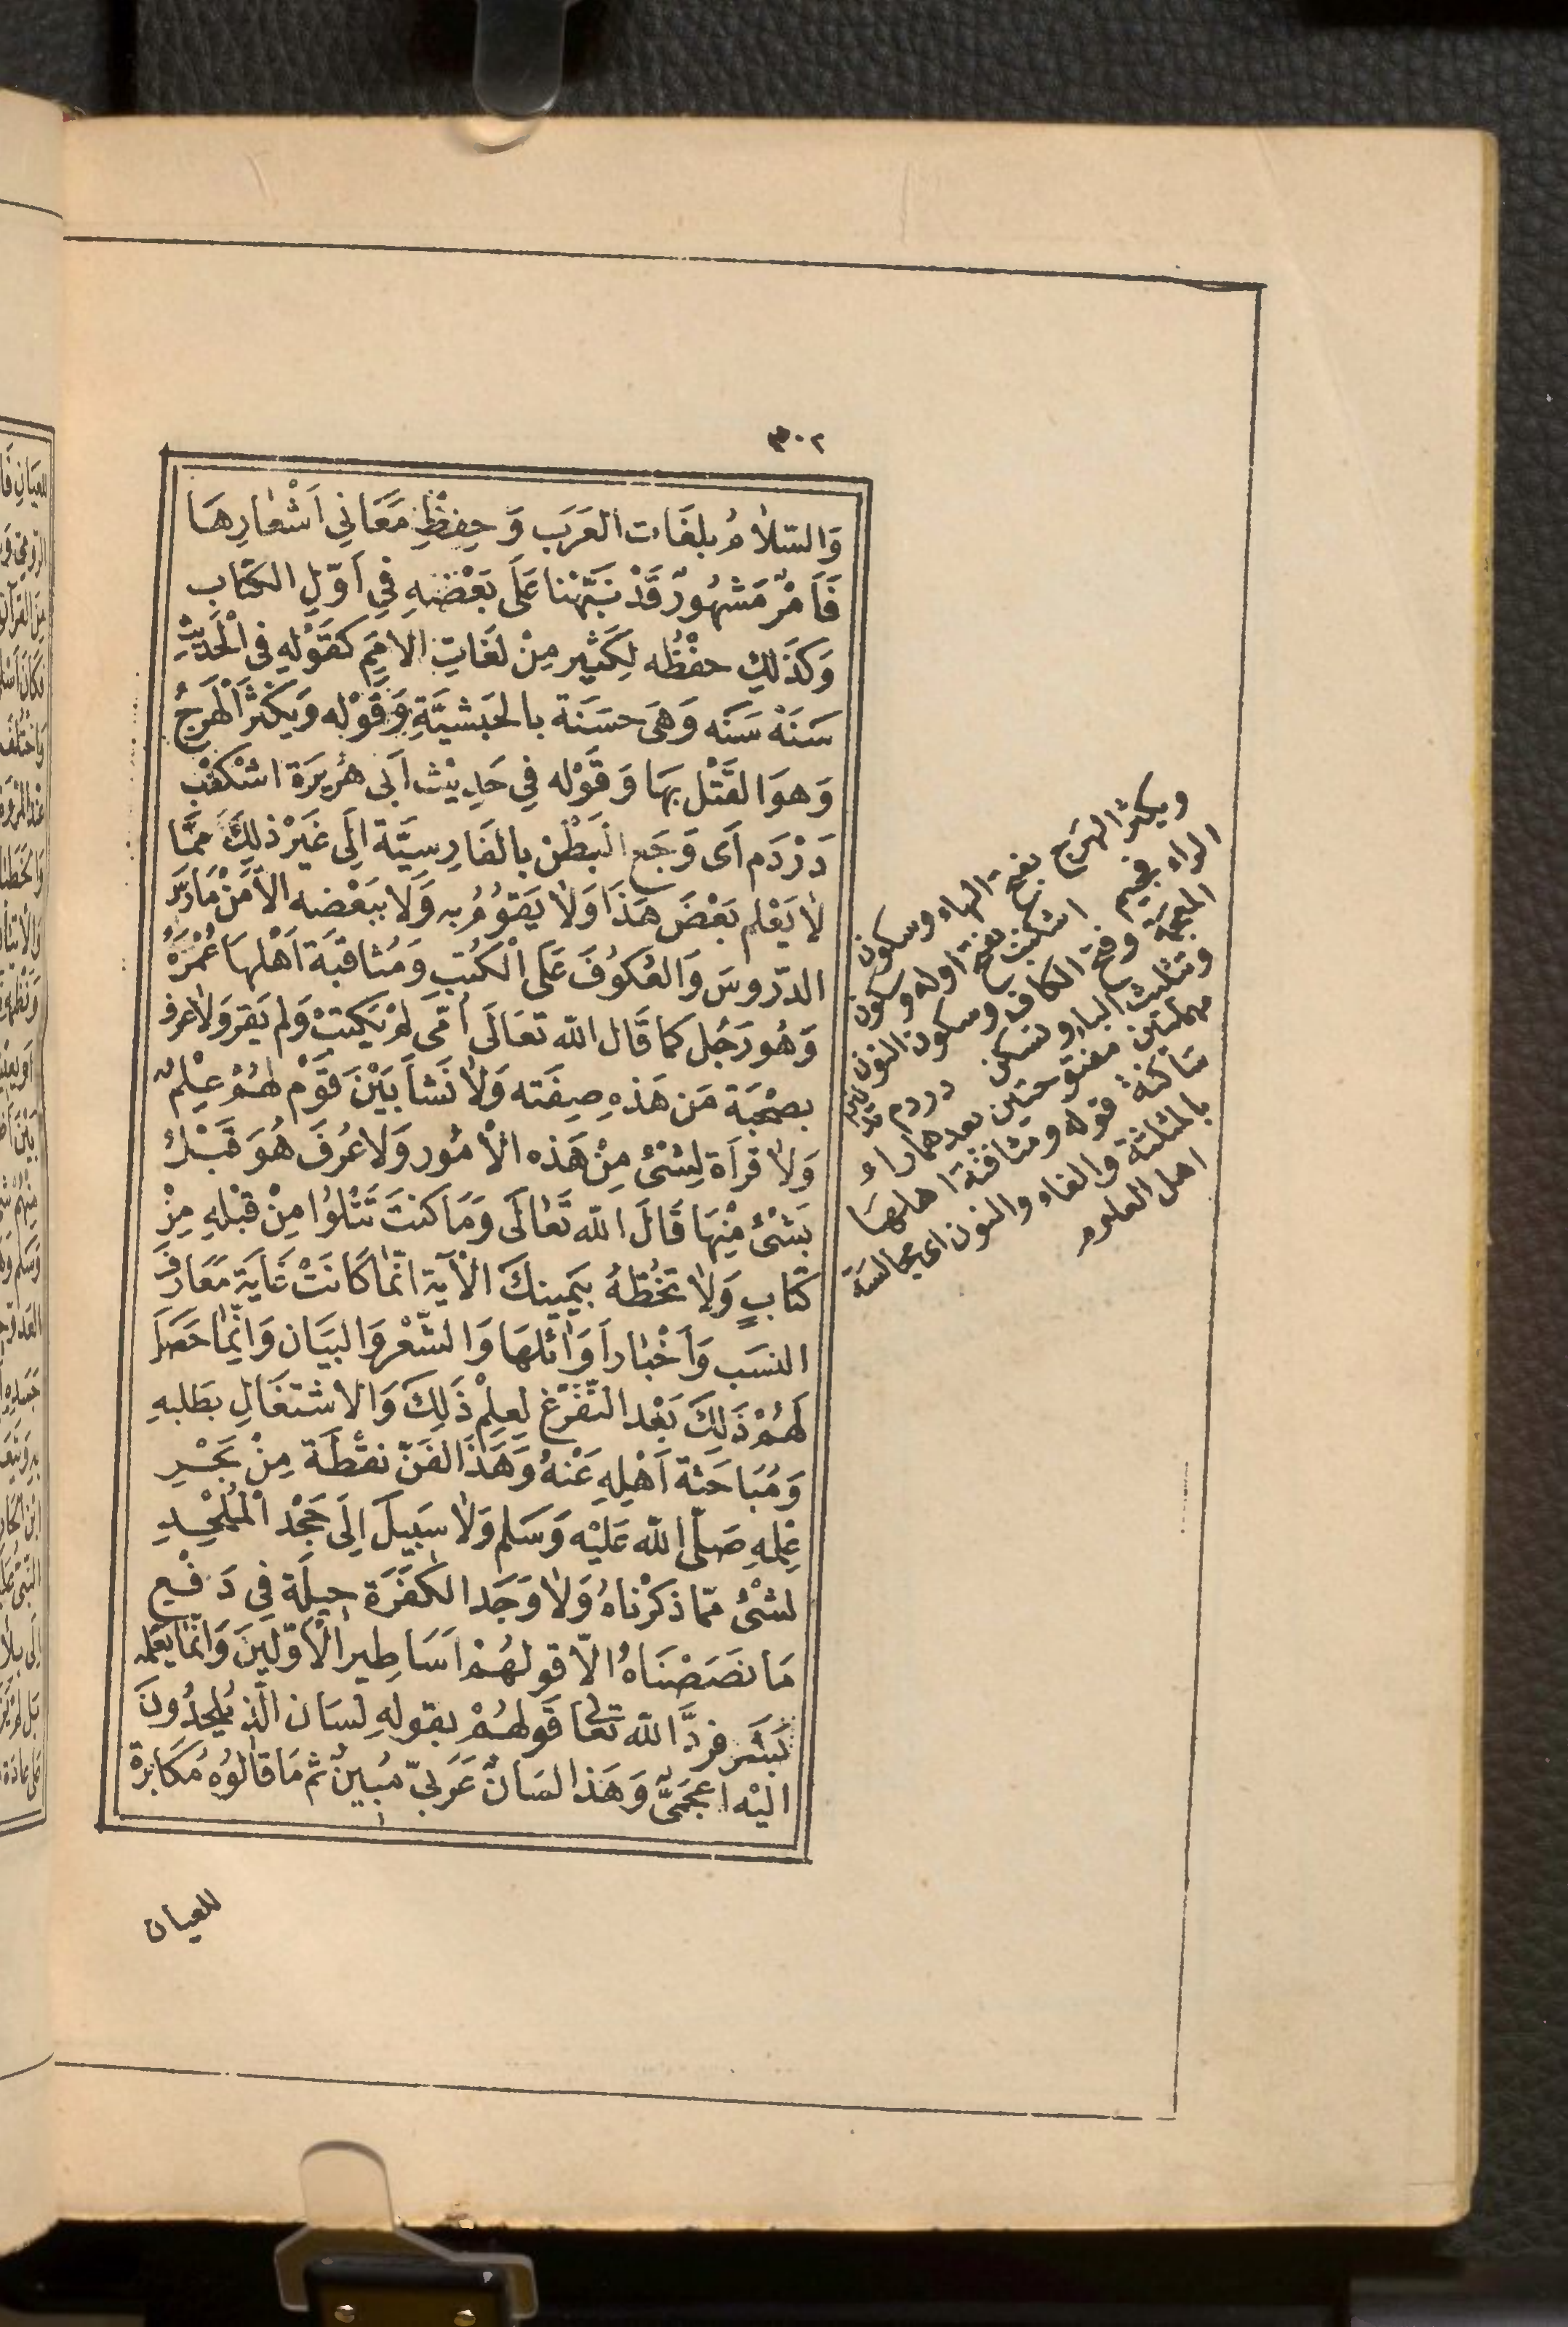 ٣٠٢
وَالسّلاٰمُ بلغَات العَرَب وَحِفظِ مَعَانِي اَشْعٰارِهَا
فَاَمْرٌ مَشهُورٌ قَدْ نَبَّهْنا عَلَى بَعْضِهِ فِي اَوّلِ الكتَاب
وَكَذَلِكَ حفْظُه لِكَثِير مِنْ لغَاتِ الامَم كقَوْلهِ فى الْحَدِيثِ
سَنَهْ سَنَه وَهىَ حسَنَة بالحَبَشيَّةِ وَقَوْله وَيَكثرُ الْهَرجُ
وَهوَ القَتْل بهَا وَقَوْله فِي حَدِيْث اَبى هُرَيرَة اشكنْب
دَرْدَم اَى وَجَع البَطْن بالفَارِسِيَّة اِلَى غَيْر ذلِكَ ممَّا
لاٰ يَعْلم بَعْضَ هَذَا وَلاٰ يَقوُمُ بهِ وَلاَ ببَعْضه الاّ مَنْ مَارَسَ
الدّروسَ وَالعُكوُفَ عَلَى الْكتُبِ وَمُثاقبَة اَهْلهَا عُمْرَهُ
وَهُو رَجُل كمَا قَال الله تعَالَى اُمّى لمْ يَكتبْ وَلم يَقرَ وَلاٰ عرف
بصُحْبَة مَن هَذهِ صِفَته وَلاٰ نَشاَ بَيْنَ قَوْم لهُمْ عِلْمٌ
وَلاٰ قرآة لِشئ مِنْ هَذه الْاُمُور وَلاَ عُرفَ هُوَ قَبْلُ
بَشئ مِنْهَا قَالَ الله تَعَالَى وَمَا كنتَ تَتْلوُا مِنْ قَبْلهِ مِنْ
كتَابٍ وَلاٰ تخُطّهُ بيَمِينكَ الْآية انّمَا كَانَتْ غَايَة مَعَارف
النسَب وَاَخْبٰار اَوٰائلهَا وَالشّعْر وَالبَيَان وَانّمٰا حَصَلَ
لَهُمْ ذَلِكَ بَعْد التّفَرّغ لِعلمْ ذَلِكَ وَالاشتغَالِ بطَلبهِ
وَمُبَاحَثة اَهْلِهِ عَنْهُ وَهَذَا الفَنّ نقْطَة مِنْ بَحْرِ
عِلمهِ صَلّى الله عَليْه وَسَلم وَلاٰ سَبيلَ اِلَى جَحْد الْمُلْحِدِ
لشئ ممّا ذكرْناهُ وَلاٰ وَجَد الكَفَرَة حِيلَة فِى دَفْعِ
مَا نصَصْنَاهُ الّا قولهُمْ اَسَاطِير الْاَوّلينَ وَانّمٰا يُعَلّمه
بَشَر فردَّ الله تعَالى قَولهُمْ بقولِهِ لسَان الّذِى يُلْحِدُونَ
اليْه اعجَمىٌّ وَهَذا لسَانٌ عَرَبيّ مُبينٌ ثم مَا قالُوهُ مُكَابرَةُ
ويكثر الهرج بفتح الهاء وسكون
الراء فجيم اشكنب بفتح اوله وسكون
المعجمة وفتح الكاف وسكون النون
وتثليث الباء وتسكن دردم
مهملتين مفتوحتين بعدهما راء
ساكنة قوله ومثافنة اهلها
بالمثلثة والفاء والنون اى مجالسة
اهل العلوم
للعيان